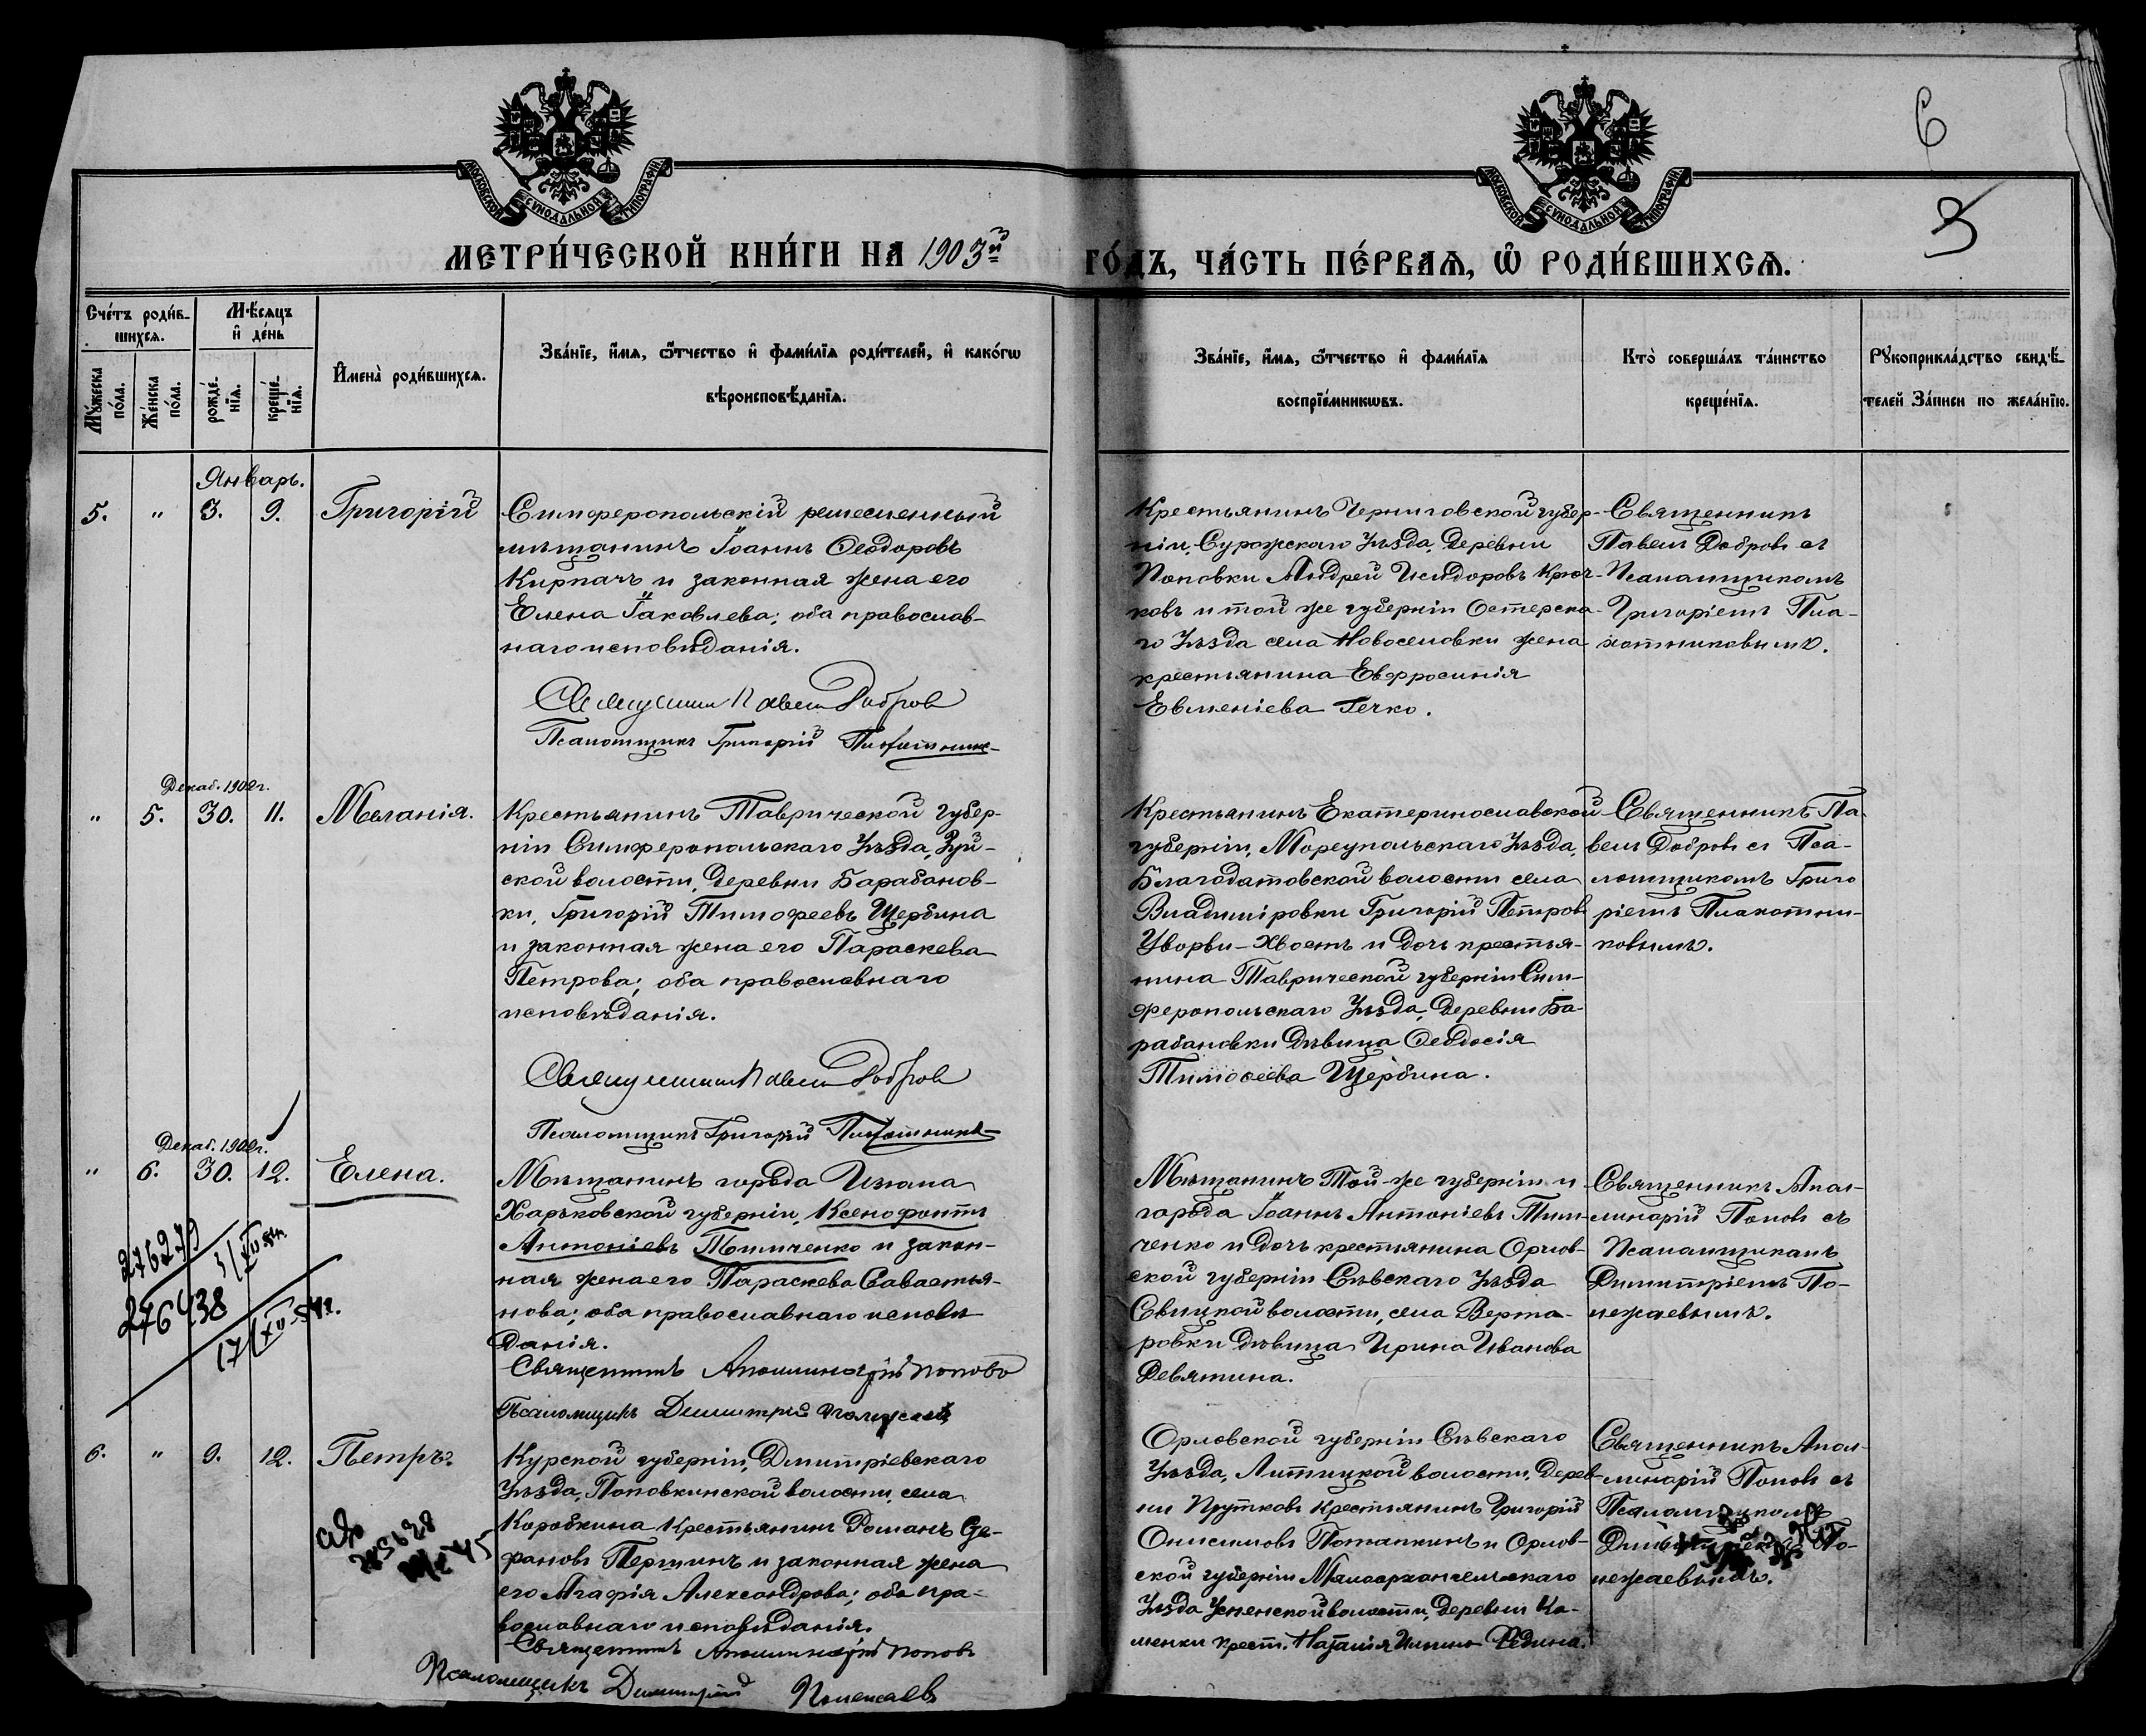 МОСКОВСКОЙ СУНОДАЛЬНОЙ ТИПОГРАФІИ
МОСКОВСКОЙ СУНОДАЛЬНОЙ ТИПОГРАФІИ
6
3
МЕТРИ́ЧЕСКОЙ КНИ́ГИ НА 1903й
ГО́ДЪ, ЧА́СТЬ ПЕ́РВАѦ, Ѡ РОДИ́ВШИХСѦ.
Сче́тъ роди́в-
шихсѧ.
Мѣ́сѧцъ
и҆ де́нь
Мꙋ́жеска
по́ла.
Же́нска
по́ла.
рожде́-
нїѧ.
креще́-
нїѧ.
И҆мена̀ роди́вшихсѧ.
Зва́нїе, и҆́мѧ, ѻ҆́тчество и҆ фами́лїѧ роди́телей, и҆ како́гѡ
вѣроисповѣ́данїѧ.
Зва́нїе, и҆́мѧ, ѻ҆́тчество и҆ фами́лїѧ
воспрїе́мникѡвъ.
Кто̀ соверша́лъ та́инство
креще́нїѧ.
Рꙋкоприкла́дство свидѣ́-
телей За́писи по жела́нїю.
Январь.
5. " 3. 9. Григорій
Симферопольскій ремесленный
мѣщанинъ Іоаннъ Ѳеодоровъ
Кирпачъ и законная жена его
Елена Іаковлева; оба православ-
наго исповѣданія.
Священникъ Павелъ Добров
Псаломщикъ Григорій
Крестьянинъ Черниговской губер-
ніи, Суражскаго Уѣзда, Деревни
Поповки Андрей Исидоровъ Крюч-
ковъ и той же губерніи Остерска-
го Уѣзда села Новоселовки жена
крестьянина Евфросинія
Евменіева Гечко.
Священникъ
Павелъ Добровъ съ
Псаломщикомъ
Григоріемъ Пла-
хотниковымъ.
Декаб. 1902г.
" 5. 30. 11. Меланія.
Крестьянинъ Таврической губер-
ніи Симферопольскаго Уѣзда, Зуй-
ской волости, Деревни Барабанов-
ки, Григорій Тимофеевъ Щербина
и законная жена его Параскева
Петрова; оба православнаго
исповѣданія.
Священникъ Павелъ Добров
Псаломщикъ Григорій
Крестьянинъ Екатеринославской
губерніи, Мореупольскаго Уѣзда,
Благодатовской волости села
Владиміровки Григорій Петровъ
Уворви-Хвостъ и дочь крестья-
нина Таврической губерніи Сим-
феропольскаго Уѣзда, Деревни Ба-
рабановки дѣвица Ѳеодосія
Тимоѳеева Щербина.
Священникъ Па-
велъ Добровъ съ Пса-
ломщикомъ Григо
ріемъ Плахотни-
ковымъ.
Декаб. 1902г.
" 6. 30. 12. Елена.
276279
276438
Мѣщанинъ города Изюма
Харьковской губерніи, Ксенофонтъ
Антоніевъ Тимченко и закон-
ная жена его Параскева Савастья-
нова; оба православнаго исповѣ-
данія.
Священникъ Аполлинарій Поповъ
Псаломщикъ Димитрій
Мѣщанинъ Той-же губерніи и
города Іоаннъ Антоніевъ Тим-
ченко и дочь крестьянина Орлов-
ской губерніи Сѣвскаго Уѣзда
волости, села
ровки дѣвица Ирина Иванова
Девяткина.
Священникъ Апол-
линарій Поповъ съ
Псаломщикомъ
Димитріемъ По-
нежаевымъ.
6. " 9. 12. Петръ.
Курской губерніи, Дмитріевскаго
Уѣзда, Поповкинской волости, села
Коробкина Крестьянинъ Романъ
Першинъ и законная жена
его Агафія Александрова; оба пра-
вославнаго исповѣданія.
Священникъ Аполлинарій Поповъ
Псаломщикъ Димитрій Понежаевъ
Орловской губерніи Сѣвскаго
Уѣзда, волости, Дерев-
ни Прутковъ Крестьянинъ Григорій
Онисимовъ Потапкинъ и Орлов-
ской губерніи Малоархангельскаго
Уѣзда Успенской волости, Деревни Ка-
менки крест. Наталія Ильина Федина.
Священникъ Апол-
линарій Поповъ съ
Псаломщикомъ
Димитріемъ По-
нежаевымъ.